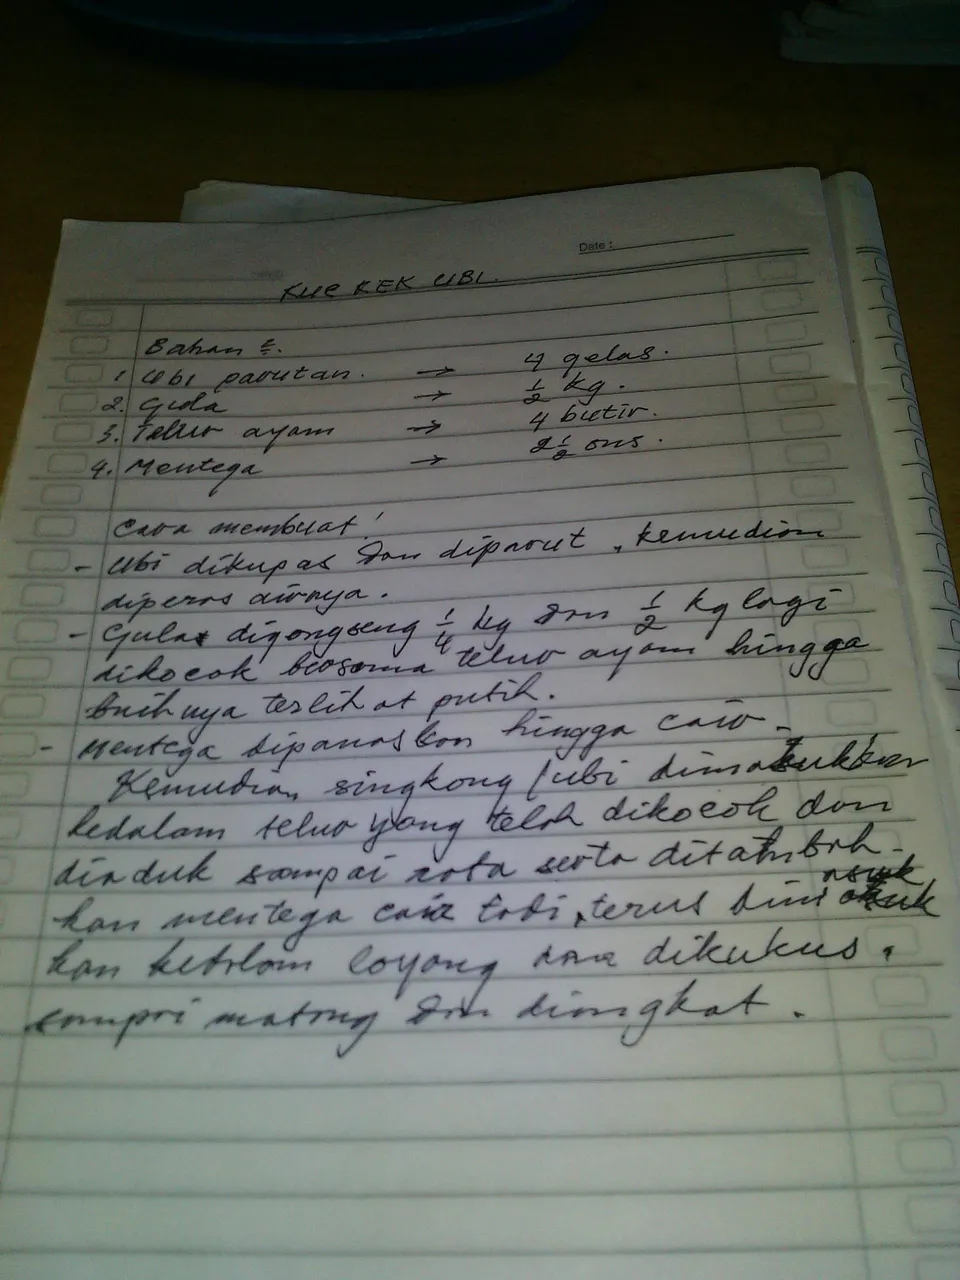 Date :
KUE KEK UBI.
Bahan :.
1. Ubi parutan. → 4 gelas.
2. Gula → 1/2 kg.
3. Telur ayam → 4 butir.
4. Mentega → 2 1/2 ons.
Cara membuat!
- Ubi dikupas dan diparut, kemudian
diperas airnya.
- Gula digongseng 1/4 kg dan 1/2 kg lagi
dikocok bersama telur ayam hingga
buihnya terlihat putih.
- Mentega dipanaskan hingga cair -
Kemudian singkong / ubi dimasukkan
kedalam telur yang telah dikocok dan
diaduk sampai rata serta ditambah-
kan mentega cair tadi, terus dimasuk
kan kedalam loyang dan dikukus.
sampai matang dan diangkat.